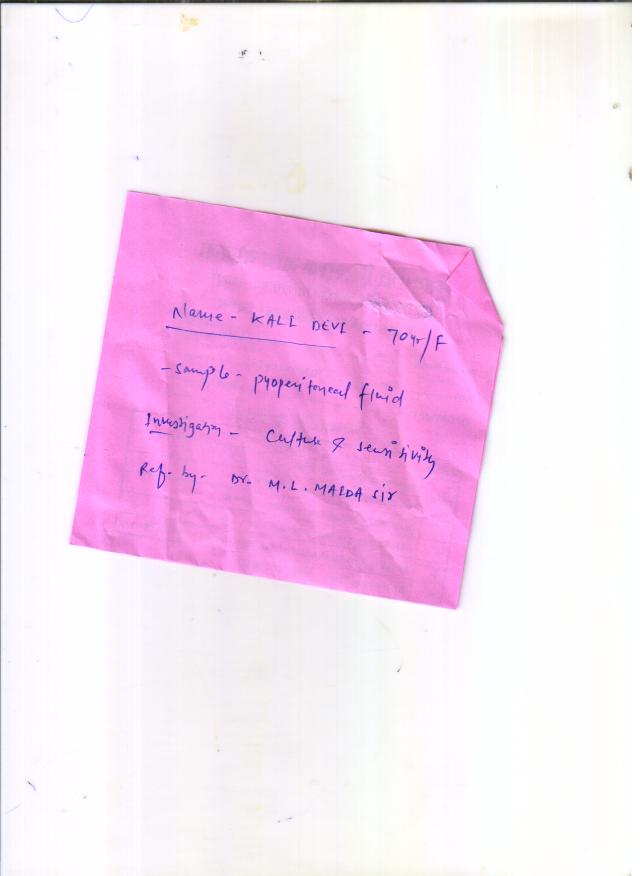 Name - KALI DEVI - 70yr/F
- Sample - pyoperitoneal fluid
Investigation - Culture & sensitivity
Ref. by - Dr. M.L. MALDA sir